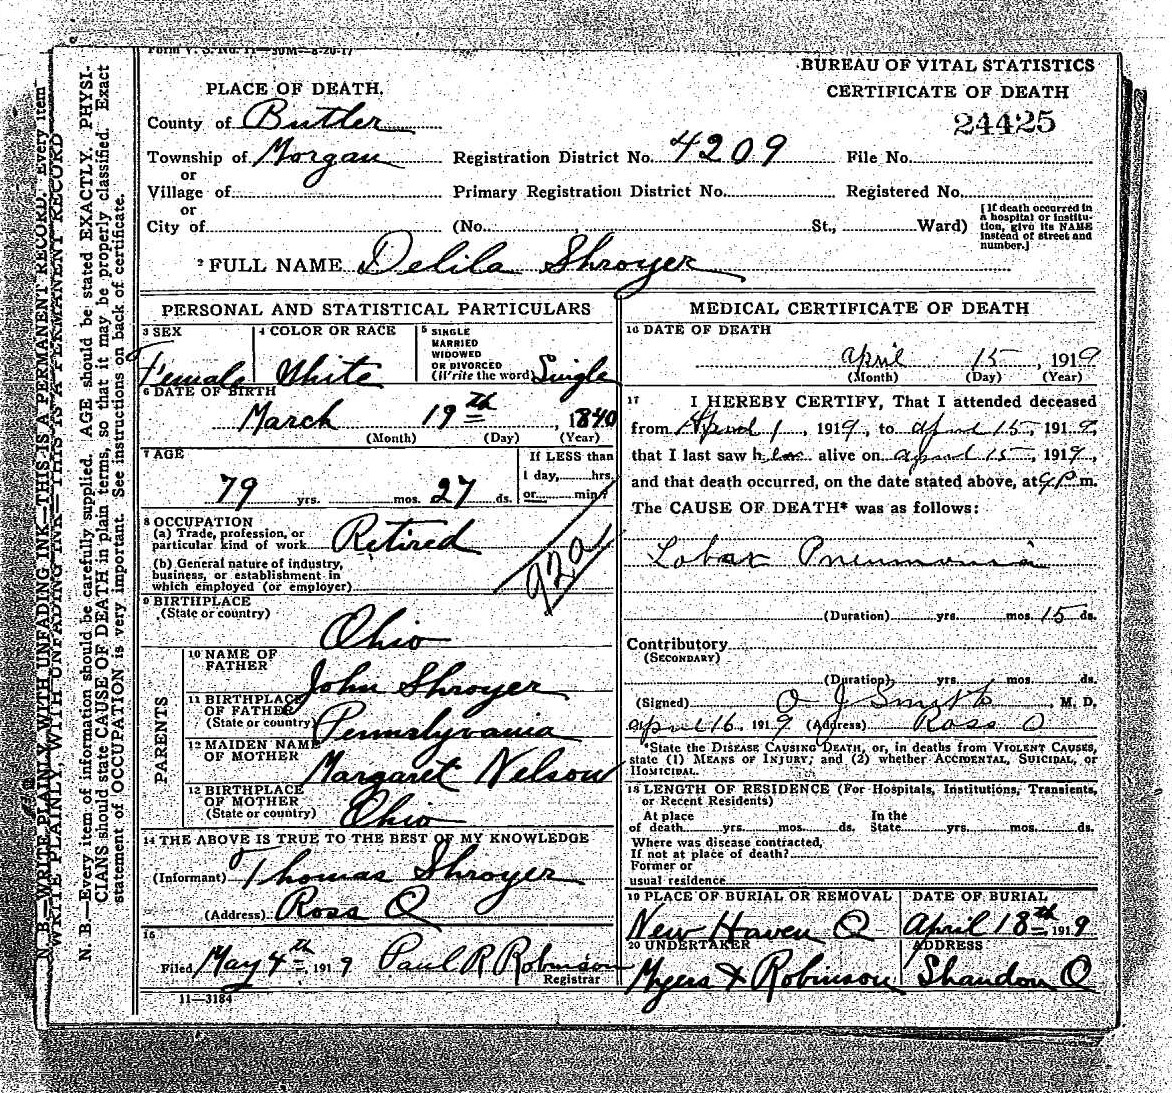 Form V. S. No. 11—50M—8-20-17
BUREAU OF VITAL STATISTICS
PLACE OF DEATH.
CERTIFICATE OF DEATH
County of Butler
24425
Township of Morgan Registration District No. 4209 File No.
or
Village of Primary Registration District No. Registered No.
or
City of (No. St., Ward) [If death occurred in a hospital or institution, give its NAME instead of street and number.]
2 FULL NAME Delila Shroyer
PERSONAL AND STATISTICAL PARTICULARS
3 SEX
Female
4 COLOR OR RACE
White
5 SINGLE
MARRIED
WIDOWED
OR DIVORCED
(Write the word) Single
6 DATE OF BIRTH
March 19th, 1840
(Month) (Day) (Year)
7 AGE
79 yrs. mos. 27 ds.
If LESS than
1 day, hrs.
or min?
8 OCCUPATION
(a) Trade, profession, or
particular kind of work Retired
(b) General nature of industry,
business, or establishment in
which employed (or employer)
92a
9 BIRTHPLACE
(State or country)
Ohio
PARENTS
10 NAME OF
FATHER
John Shroyer
11 BIRTHPLACE
OF FATHER
(State or country)
Pennslyvania
12 MAIDEN NAME
OF MOTHER
Margaret Nelson
12 BIRTHPLACE
OF MOTHER
(State or country)
Ohio
14 THE ABOVE IS TRUE TO THE BEST OF MY KNOWLEDGE
(Informant) Thomas Shroyer
(Address) Ross O
15
Filed May 4th 1919 Paul R Robinson
Registrar
11—3184
MEDICAL CERTIFICATE OF DEATH
16 DATE OF DEATH
April 15, 1919
(Month) (Day) (Year)
17 I HEREBY CERTIFY, That I attended deceased
from April 1, 1919, to April 15, 1919,
that I last saw her alive on April 15, 1919,
and that death occurred, on the date stated above, at 9 P.m.
The CAUSE OF DEATH* was as follows:
Lobar Pneumonia
(Duration) yrs. mos. 15 ds.
Contributory
(SECONDARY)
(Duration) yrs. mos. ds.
(Signed) O J Smyth, M. D.
April 16 1919 (Address) Ross O
*State the DISEASE CAUSING DEATH, or, in deaths from VIOLENT CAUSES,
state (1) MEANS OF INJURY; and (2) whether ACCIDENTAL, SUICIDAL, or
HOMICIDAL.
18 LENGTH OF RESIDENCE (For Hospitals, Institutions, Transients,
or Recent Residents)
At place In the
of death yrs. mos. ds. State yrs. mos. ds.
Where was disease contracted,
If not at place of death?
Former or
usual residence
19 PLACE OF BURIAL OR REMOVAL
New Haven O
DATE OF BURIAL
April 18th 1919
20 UNDERTAKER
Myers & Robinson
ADDRESS
Shandon O
N. B.—WRITE PLAINLY, WITH UNFADING INK—THIS IS A PERMANENT RECORD. Every item
WRITE PLAINLY, WITH UNFADING INK—THIS IS A PERMANENT RECORD
N. B.—Every item of information should be carefully supplied. AGE should be stated EXACTLY. PHYSI-
CIANS should state CAUSE OF DEATH in plain terms, so that it may be properly classified. Exact
statement of OCCUPATION is very important. See instructions on back of certificate.